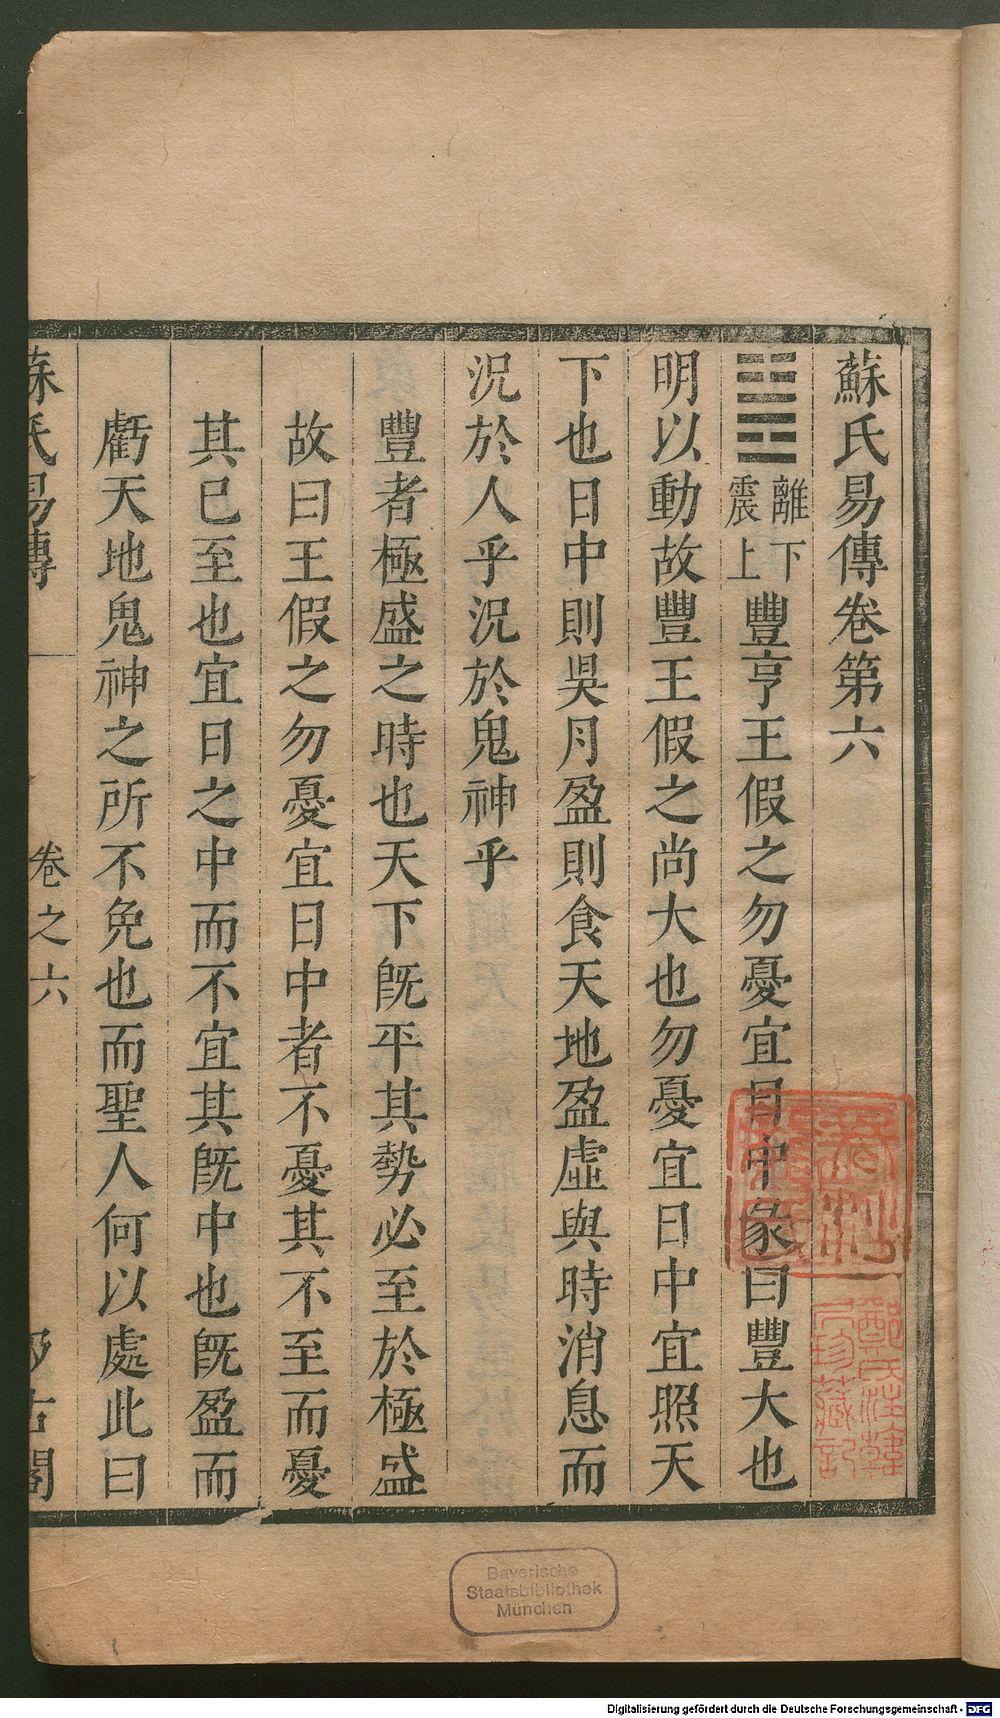 蘇氏易傳卷第六
離下
震上
豐亨王假之勿憂宜日中彖曰豐大也
明以動故豐王假之尚大也勿憂宜日中宜照天
下也日中則昃月盈則食天地盈虛與時消息而
況於人乎況於鬼神乎
豐者極盛之時也天下既平其勢必至於極盛
故曰王假之勿憂宜日中者不憂其不至而憂
其已至也宜日之中而不宜其既中也既盈而
虧天地鬼神之所不免也而聖人何以處此曰
蘇氏易傳
卷之六
汲古閣
鄭氏注韓
居珍藏記
Bayerische
Staatsbibliothek
München
Digitalisierung gefördert durch die Deutsche Forschungsgemeinschaft - DFG